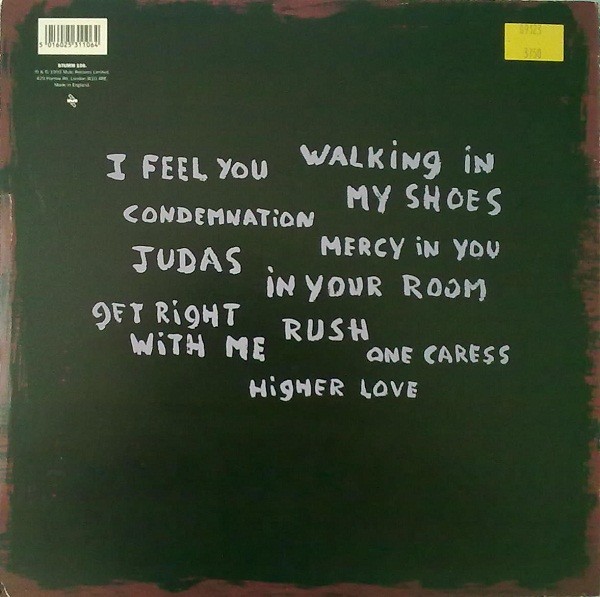 5 016025 311064
STUMM 106.
℗ & © 1993 Mute Records Limited,
429 Harrow Rd, London W10 4RE.
Made in England.
I FEEL YOU
WALKiNg iN
MY SHOES
CONDEMNATiON
MERCY iN YOU
JUDAS
iN YOUR ROOM
gET RigHT
WiTH ME
RUSH
ONE CARESS
HigHER LOVE